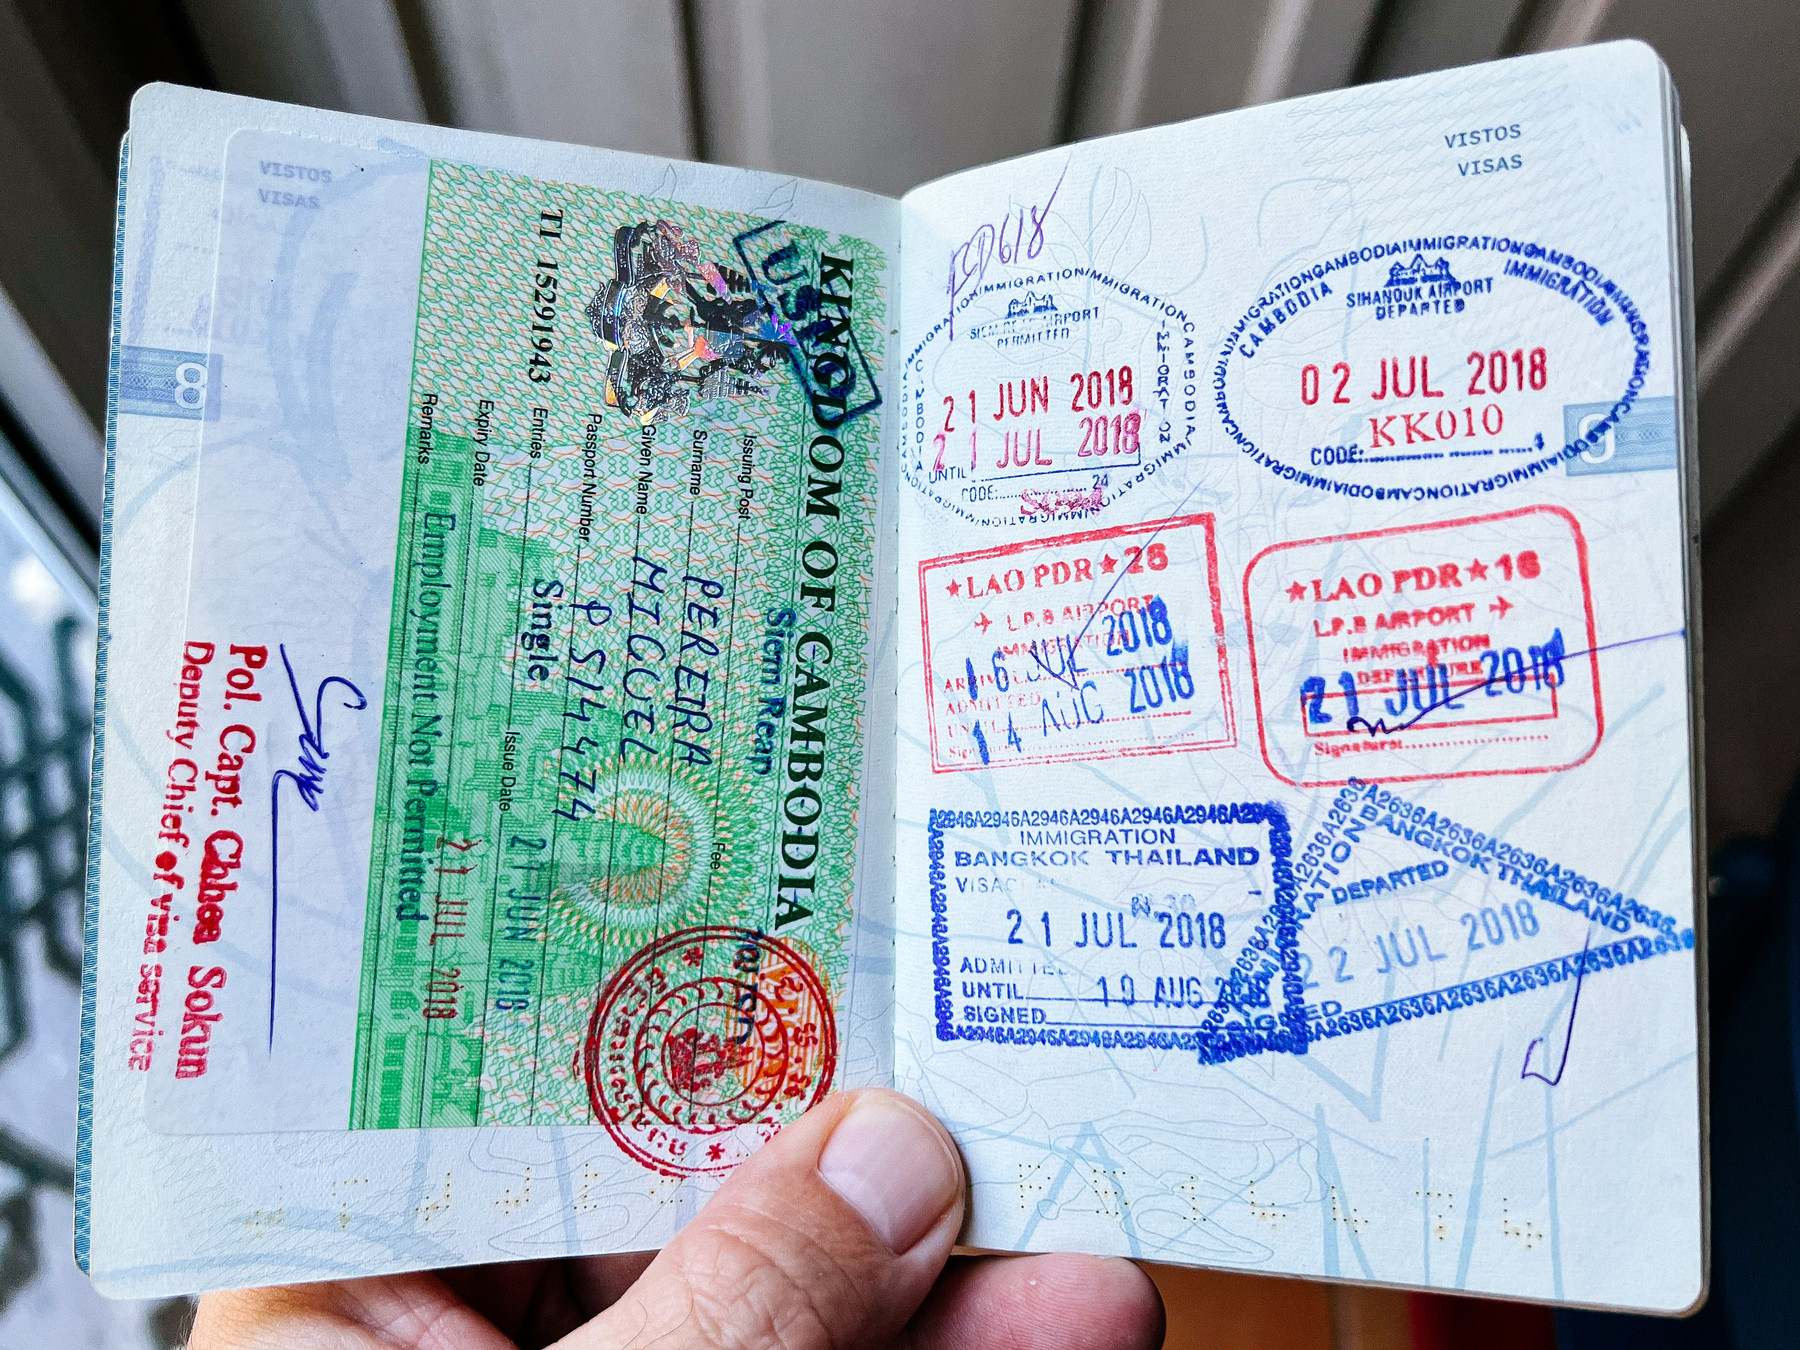 VISTOS
VISAS
8
KINGDOM OF CAMBODIA
USED
TI 15291943
Issuing Post Siem Reap
Fee
Tourism
Surname PEREIRA
Given Name MIGUEL
Passport Number P514474
Entries Single
Issue Date 21 JUN 2018
Expiry Date 21 JUL 2018
Remarks Employment Not Permitted
Pol. Capt. Chhea Sokun
Deputy Chief of visa service
VISTOS
VISAS
9
IMMIGRATION
CAMBODIA
SIEM REAP AIRPORT
PERMITTED
21 JUN 2018
21 JUL 2018
UNTIL
CODE: 24
CAMBODIA
IMMIGRATION
SIHANOUK AIRPORT
DEPARTED
02 JUL 2018
KK010
CODE:
★LAO PDR★25
L.P.B AIRPORT
IMMIGRATION
16 JUL 2018
ADMITTED
14 AUG 2018
★LAO PDR★16
L.P.B AIRPORT
IMMIGRATION
DEPARTURE
21 JUL 2018
Signature:
A2946A2946A2946A2946A2946A2946A29
IMMIGRATION
BANGKOK THAILAND
21 JUL 2018
ADMITTED
UNTIL 19 AUG
SIGNED
A2636A2636A2636A2636A2636
IMMIGRATION
BANGKOK THAILAND
DEPARTED
22 JUL 2018
SIGNED
P514474